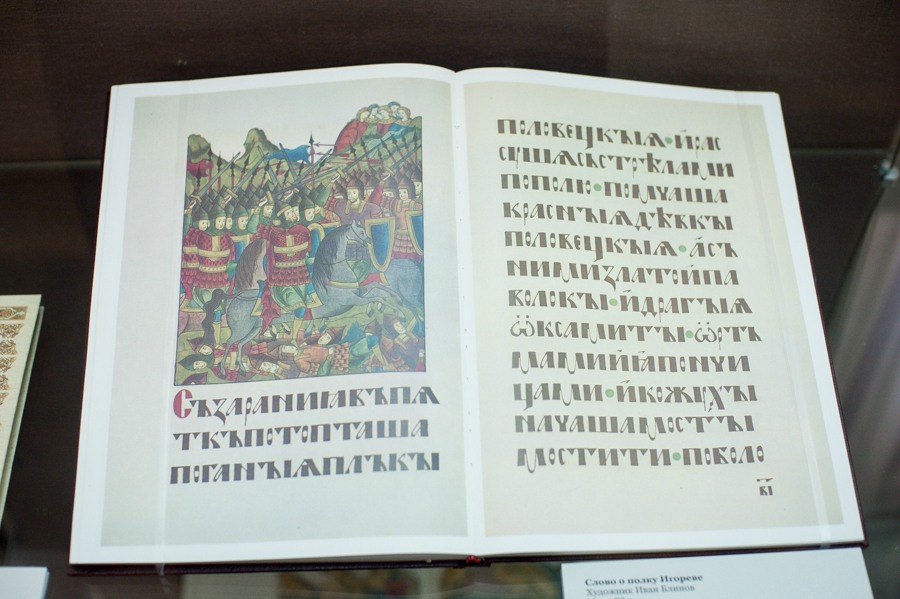 СЪЗАРАНИꙖВЪПѦ
ТКЪПОТОПТАША
ПОГАНЪIѦПЛЪКЫ
ПОЛОВЕЦКЪIѦ·ЙРАС
СꙋШѦСѧСТРѢЛАМИ
ПОПОЛЮ·ПОМЧАША
КРАСНЪIѦДѢВКЫ
ПОЛОВЕЦКЪIѦ·ЙСЪ
НИМИЗЛАТОЙПА
ВОЛОКЫ·ЙДРАГЪIѦ
ѾКСАМИТЪI·ѾРТЪ
МАМИЙꙖПОНЧИ
ЦАМИ·ЙКОЖꙋХЪI
НАЧАШАМОСТЪI
МОСТИТИ·ПОБОЛО
ВІ
Слово о полку Игореве
Художник Иван Блинов